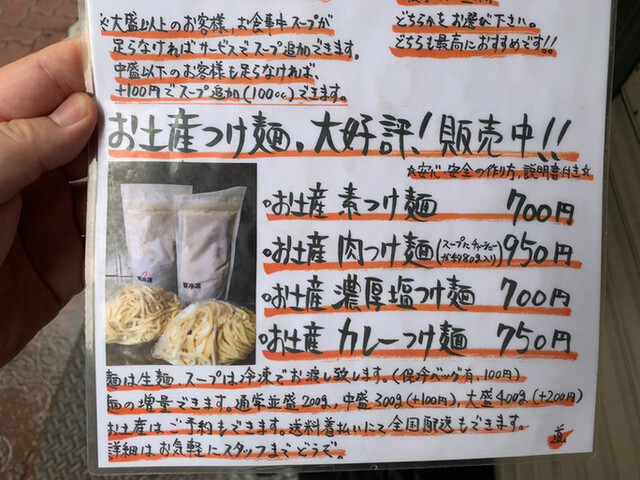 ※大盛以上のお客様、お食事中スープが
足らなければサービスでスープ追加できます。
中盛以下のお客様も足らなければ、
+100円でスープ追加(100cc)できます。
どちらかをお選び下さい。
どちらも最高におすすめです!!
お土産つけ麺、大好評!販売中!!
☆安心・安全の作り方、説明書付き☆
・お土産 素つけ麺 700円
・お土産 肉つけ麺(スープにチャーシューが約80g入り) 950円
・お土産 濃厚塩つけ麺 700円
・お土産 カレーつけ麺 750円
麺は生麺、スープは冷凍でお渡し致します。(保冷バッグ有、100円)
麺の増量できます。通常並盛200g、中盛300g(+100円)、大盛400g(+200円)
お土産はご予約もできます。送料着払いにて全国配送もできます。
詳細はお気軽にスタッフまでどうぞ。
道